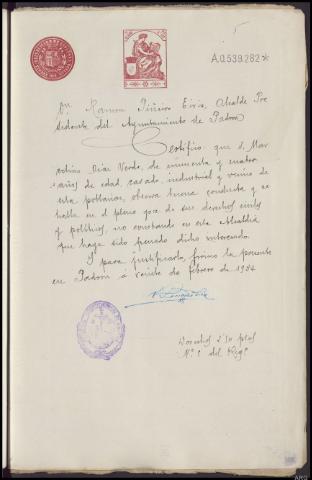 A.0.539.282*
Dn. Ramon Piñeiro Eiris, Alcalde Pre
sidente del Ayuntamiento de Padron
Certifico: que D. Mar
celino Diaz Verde, de cincuenta y cuatro
años de edad, casado, industrial y vecino de
esta poblacion, observa buena conducta y se
halla en el pleno goce de sus derechos civiles
y politicos, no constando en esta Alcaldia
que haya sido penado dicho interesado.
Y para justificarlo, firmo la presente
en Padron á veinte de febrero de 1934
Derechos 2'50 ptas
Nº 1 del Regº